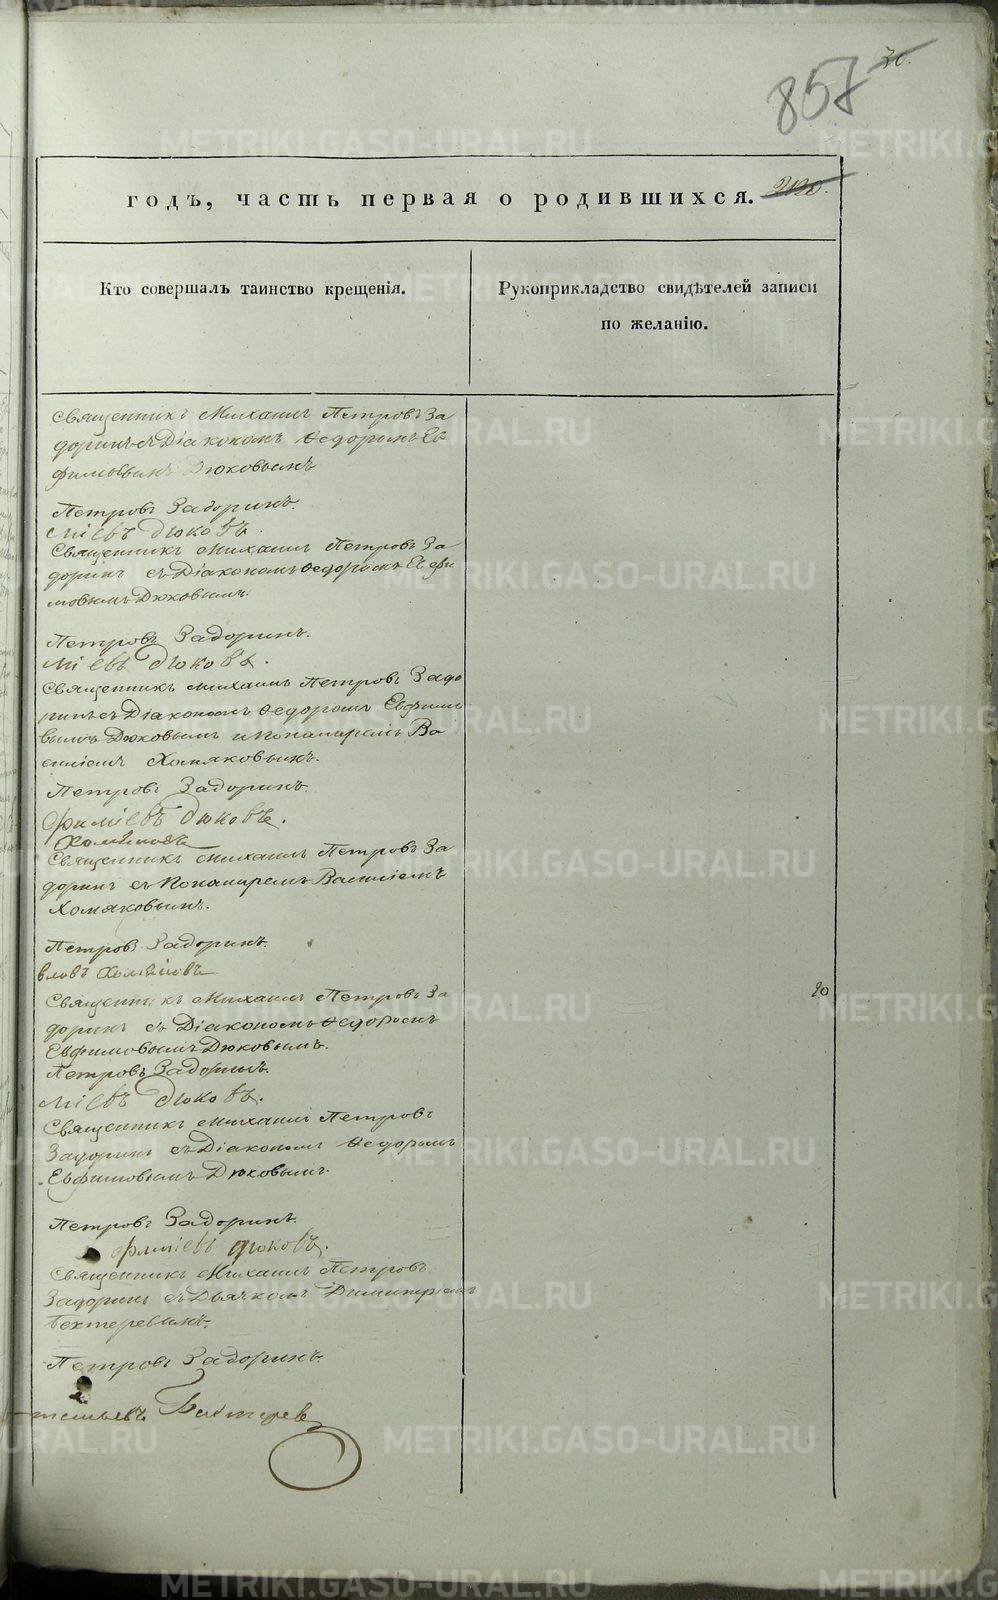 857
30.
годъ, часть первая о родившихся.
Кто совершалъ таинство крещенія.
Рукоприкладство свидѣтелей записи
по желанію.
Священникъ Михаилъ Петровъ За
доринъ съ Діакономъ Ѳедоромъ Ев
фимовымъ Дюковымъ
Петровъ Задоринъ.
міевъ Дюковъ.
Священникъ Михаилъ Петровъ За
доринъ съ Діакономъ Ѳедоромъ Евфи
мовымъ Дюковымъ.
Петровъ Задоринъ.
міевъ Дюковъ.
Священникъ Михаилъ Петровъ Задо
ринъ съ Діакономъ Ѳедоромъ Евфимо
вымъ Дюковымъ и Пономаремъ Ва
силіемъ Хомяковымъ.
Петровъ Задоринъ.
Фиміевъ Дюковъ.
Хомяковъ
Священникъ Михаилъ Петровъ За
доринъ съ Пономаремъ Василіемъ
Хомяковымъ.
Петровъ Задоринъ.
вловъ Хомяковъ
Священникъ Михаилъ Петровъ За
доринъ съ Діакономъ Ѳедоромъ
Евфимовымъ Дюковымъ.
Петровъ Задоринъ.
міевъ Дюковъ.
20
Священникъ Михаилъ Петровъ
Задоринъ съ Діакономъ Ѳедоромъ
Евфимовымъ Дюковымъ.
Петровъ Задоринъ.
фиміевъ Дюковъ.
Священникъ Михаилъ Петровъ
Задоринъ съ Дьячкомъ Димитріемъ
Бехтеревымъ.
Петровъ Задоринъ.
Бехтерев
METRIKI.GASO-URAL.RU